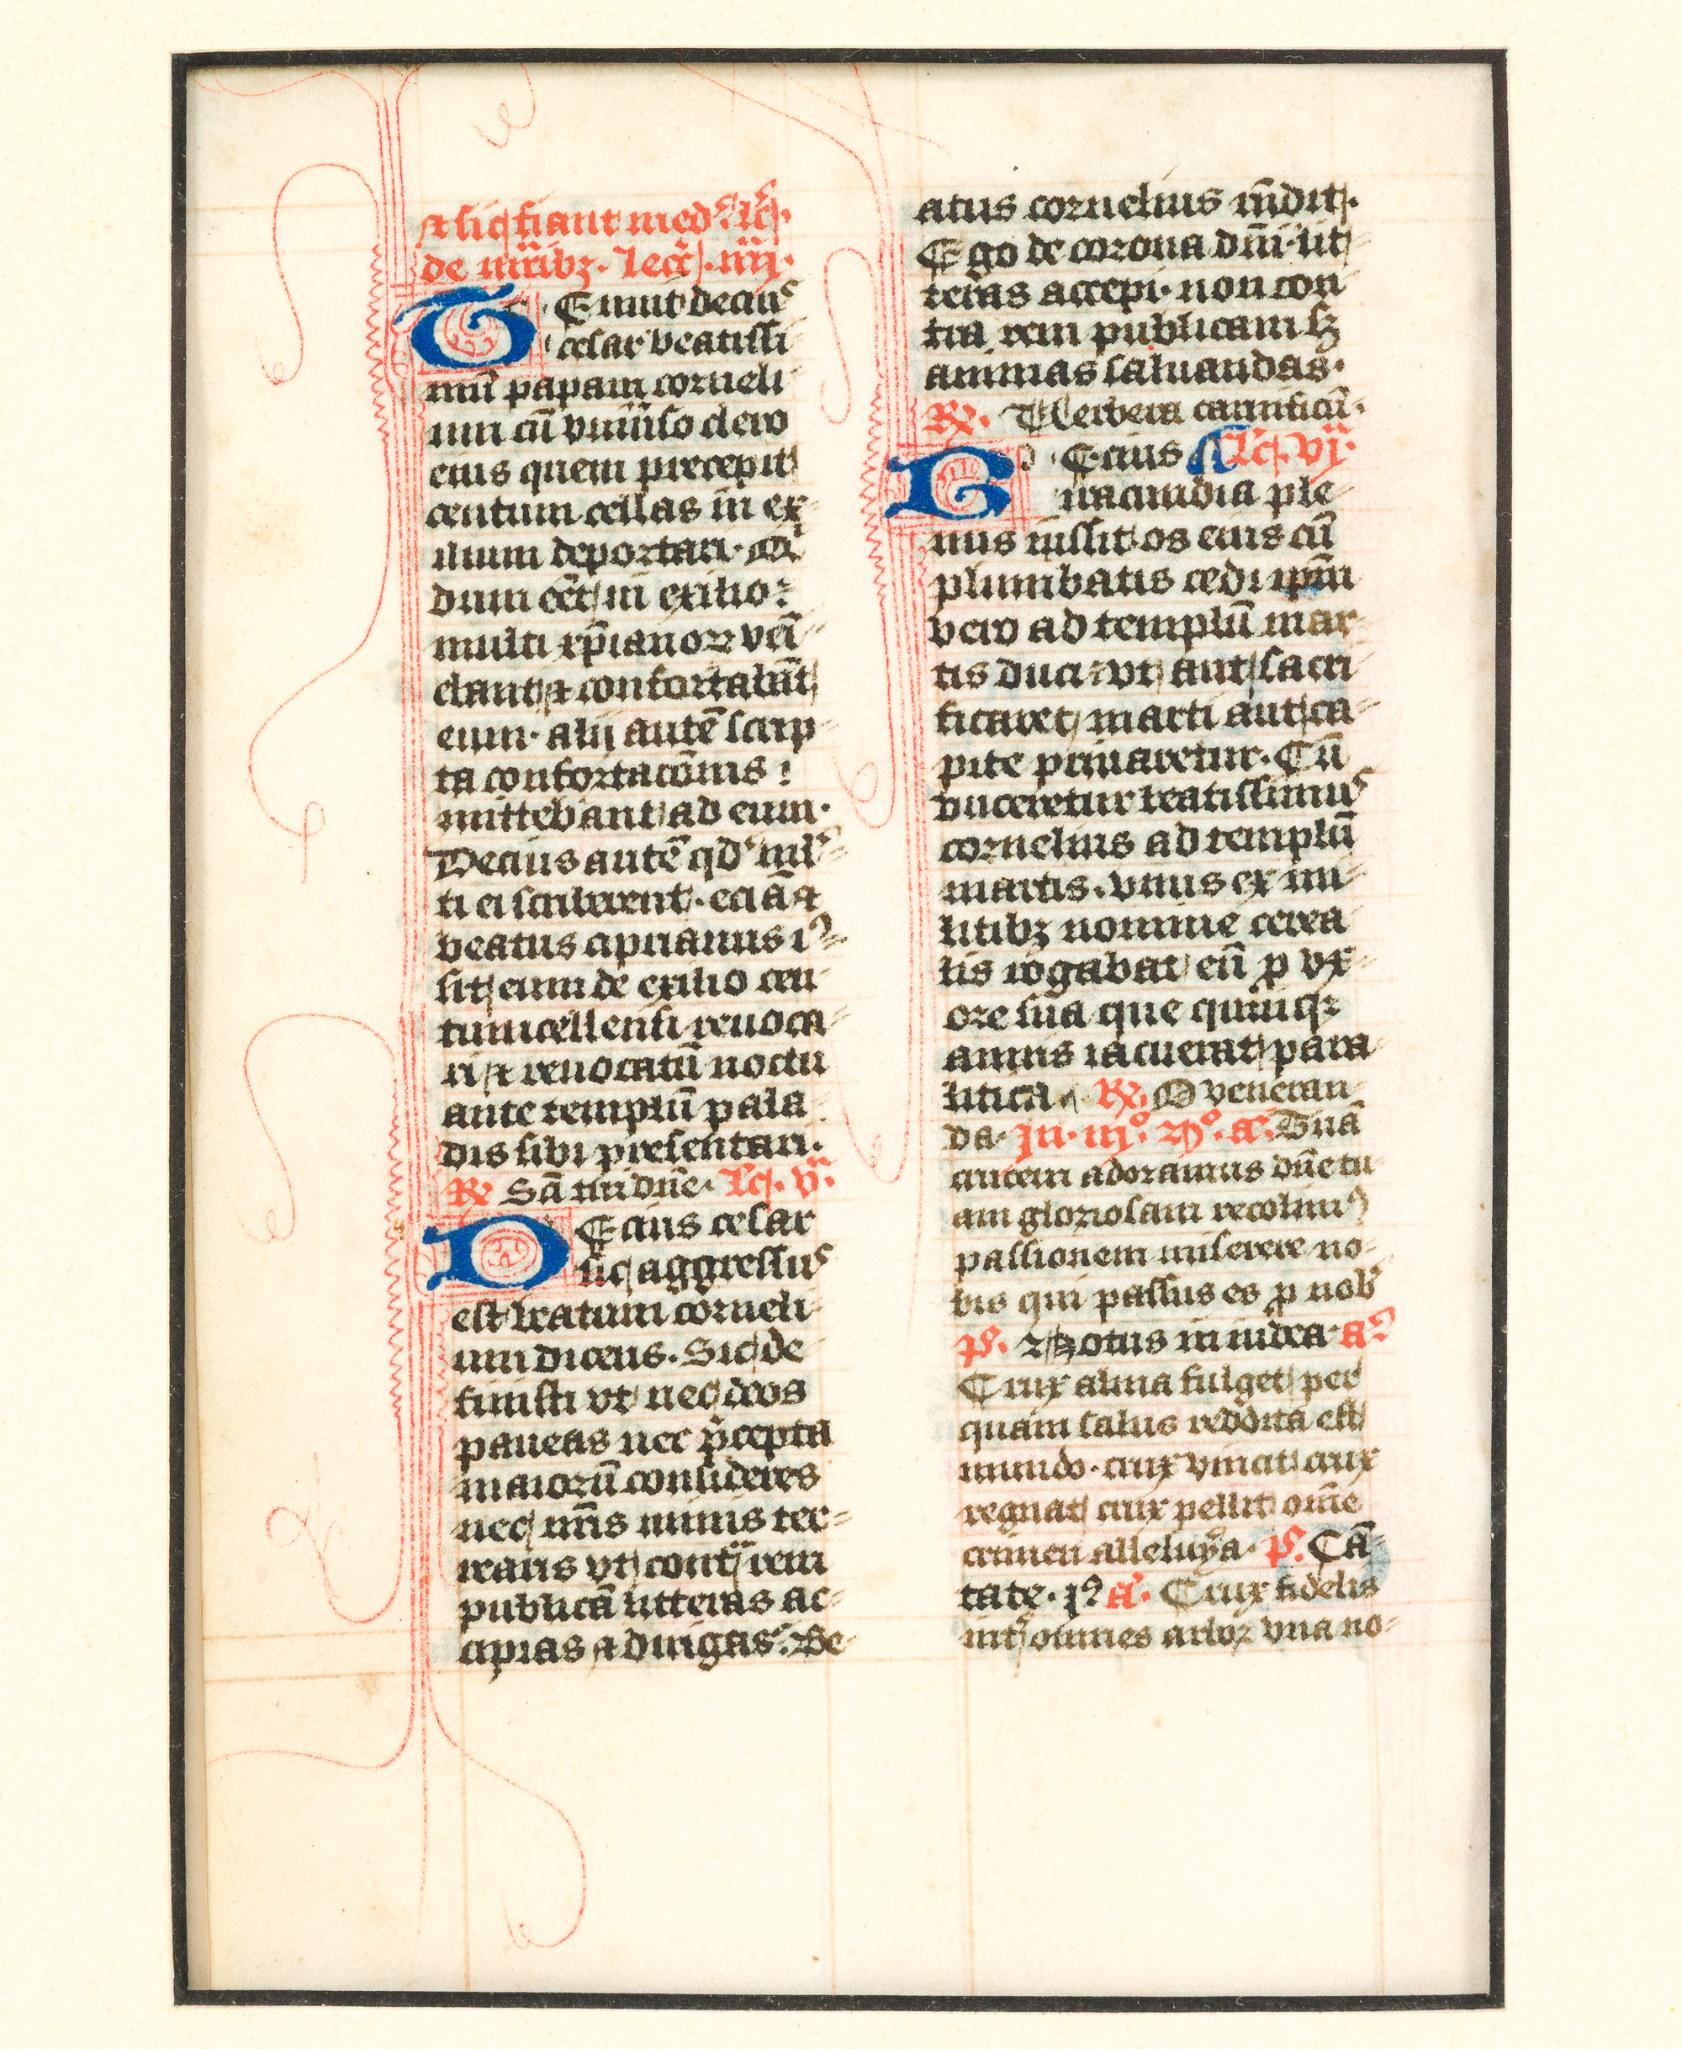 ⁊ sic fiant med̾. lc̄.
de m̄ribꝫ. lecc̄. iiij.
TEmut decius
cesar beatissi
mū papam corneli
um cū vniu̾so clero
eius quem precepit
centum cellas in ex
ilium deportari.
dum eēt in exilio:
multi xp̄ianoꝝ veī
ebant ⁊ confortabāt
eum. alij autē scrip
ta confortacōnis
mittebant ad eum.
Decius autē qd̾
ti ei scriberent. eciā ⁊
beatus ciprianus iꝰ
sit eum de exilio cen
tumcellensi reuoca
ri ⁊ reuocatū noctu
ante templū pala
dis sibi presentari.
℟ Sā dn̄e. Lc̄. v.
DEcius cesar
sic aggressus
est beatum corneli
um dicens. Sic de
finisti vt nec deos
paueas nec p̄cepta
maiorū consideres
nec nr̄is minis ter
reais vt contͣ rem
publicā litteras ac
cipias ⁊ dirigas. Be
atus cornelius rn̄dit.
Ego de corona dn̄i lit
teras accepi. non con
tra rem publicam sꝫ
animas saluandas.
℟. Verbera carnificū.
DEcius Lc̄. vj.
iracundia ple
nus iussit os eius cū
plumbatis cedi ipm̄
vero ad templū mar
tis duci: vt aut sacri
ficaret marti aut ca
pite priuaretur. Cū
duceretur beatissimus
cornelius ad templū
martis. vnus ex mi
litibꝫ nomine cerea
lis rogabat eū ꝓ vx
ore sua que quinqꝫ
annis iacuerat para
litica. ℟. O veneran
da. In. iij°. n°. a. Tuā
crucem adoramus dn̄e tu
am gloriosam recolimꝰ
passionem miserere no
bis qui passus es ꝓ nob̾
ps̄. Notus in iudea. a
Crux alma fulget per
quam salus reddita est
mundo. crux vincit crux
regnat crux pellit om̄e
crimen alleluya. ps̄. Cā
tate. jꝰ a. Crux fidelis
int̾ omnes arbor vna no